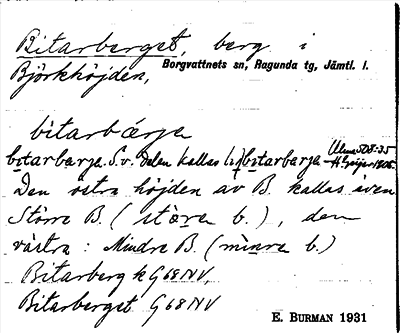 Bitarberget, berg i
Björkhöjden, Borgvattnets sn, Ragunda tg, Jämtl. l.
bitarbærja
bitarbærja. S.v. delen kallas bitarbærja Ulma 508:35
H. Geijer 1908.
Den östra höjden av B. kallas även
Större B. (stö̀ra b.), den
västra: Mindre B. (mìnra b.)
Bitarberg k G68NV,
Bitarberget G68NV
E. BURMAN 1931